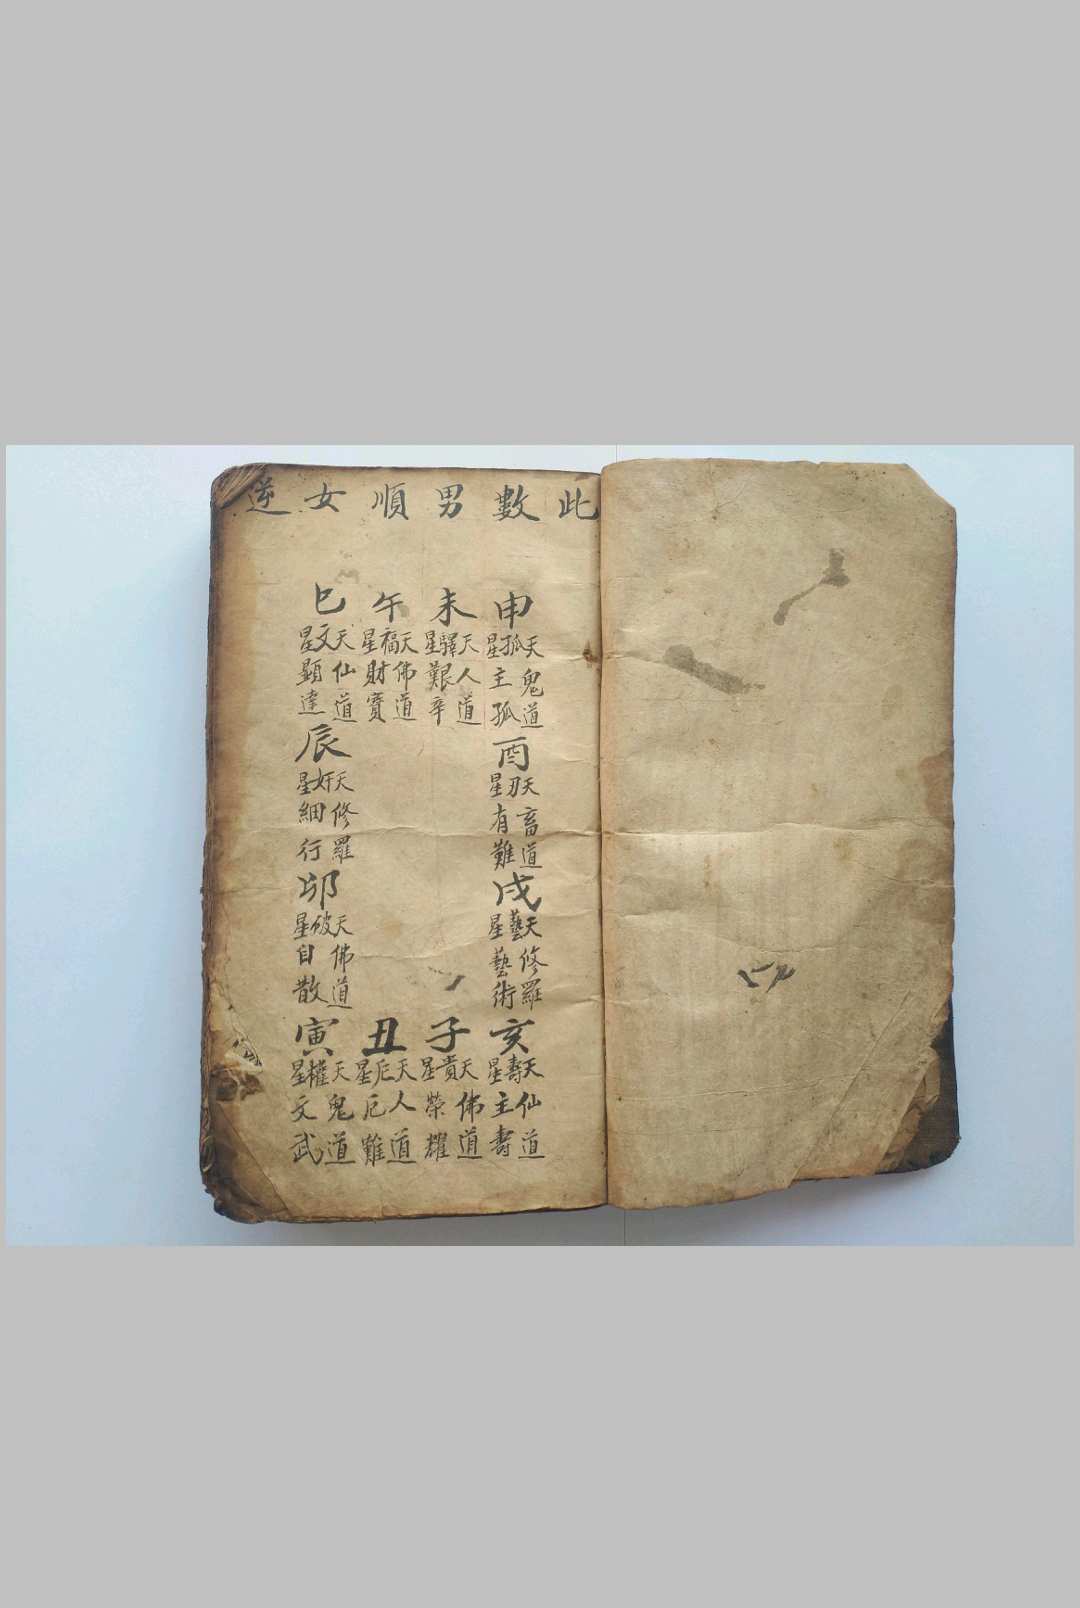 此數男順女逆
申
天孤星
鬼道
主孤
未
天驛星
人道
艱辛
午
天福星
佛道
財寶
巳
天文星
仙道
顯達
酉
天刃星
畜道
有難
辰
天奸星
修羅
細行
戌
天藝星
修羅
藝術
卯
天破星
佛道
自散
亥
天壽星
仙道
主壽
子
天貴星
佛道
榮耀
丑
天厄星
人道
厄難
寅
天權星
鬼道
文武